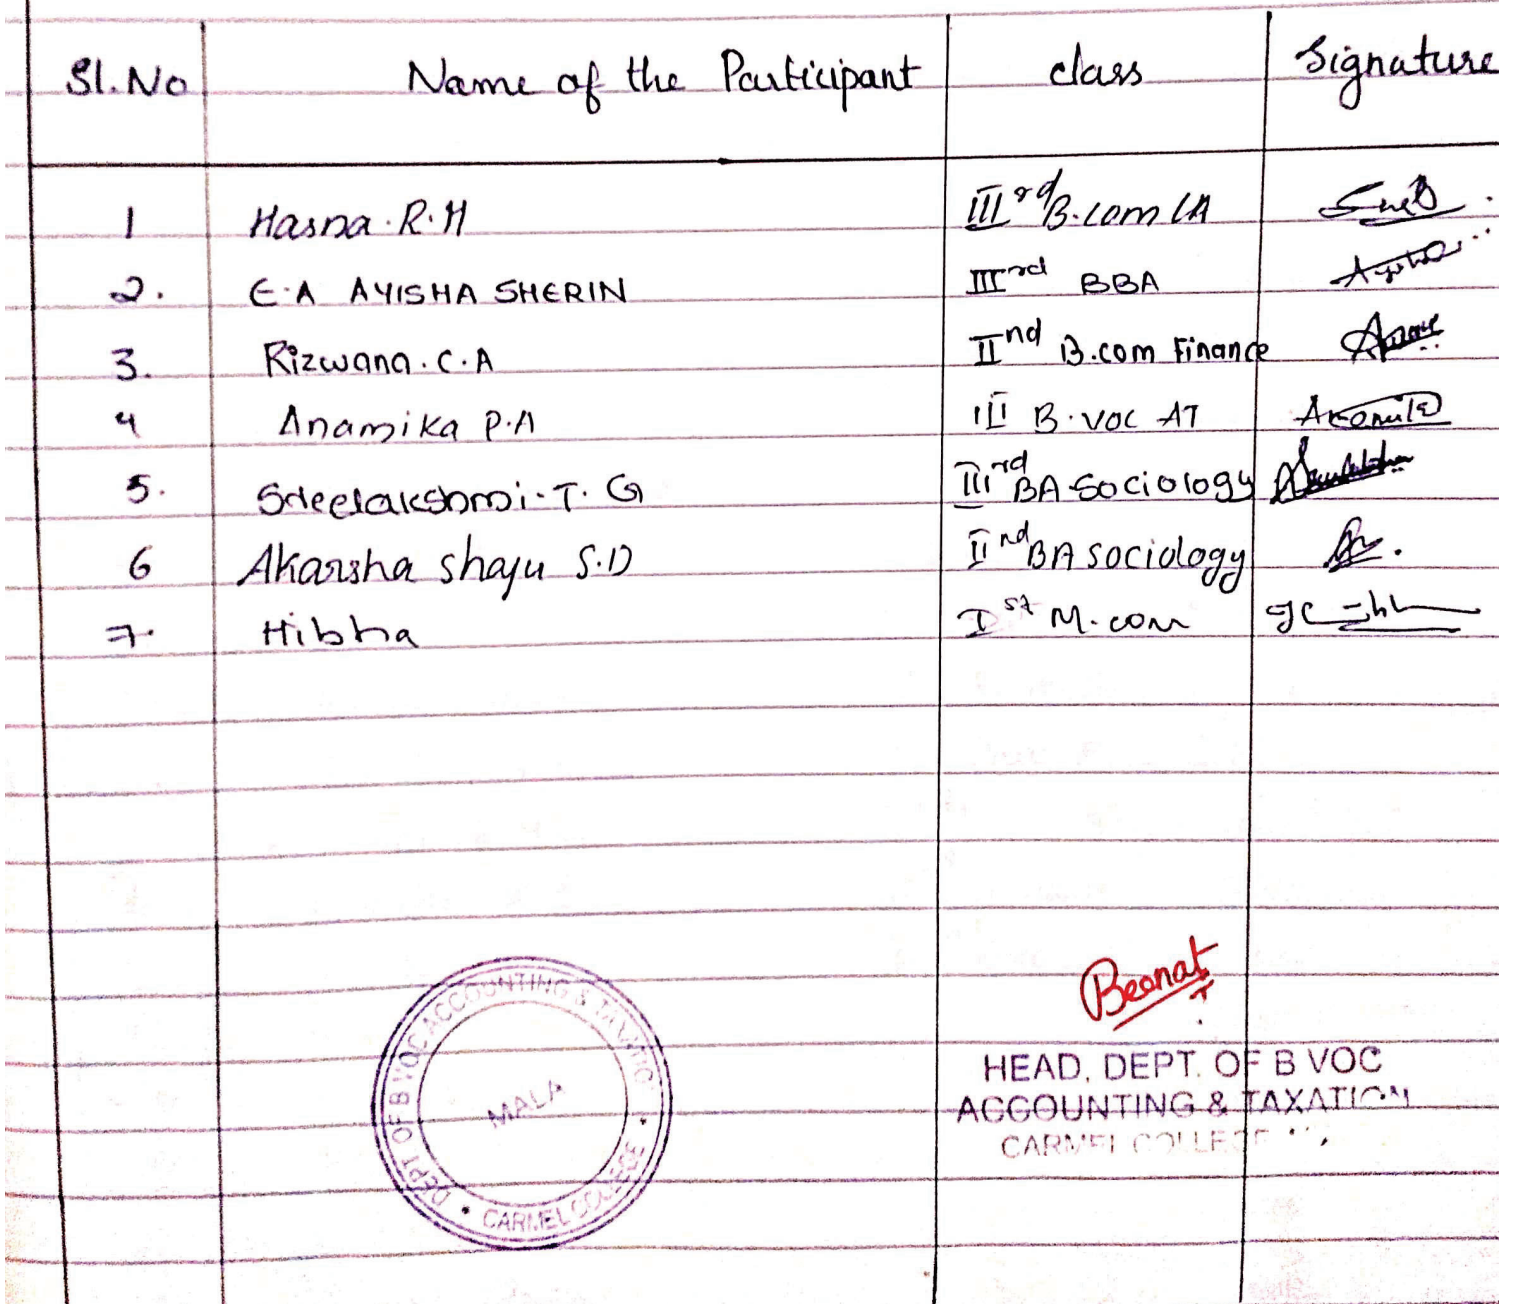 Sl.No Name of the Participant class Signature
1 Hasna.R.H IIIrd B.com CA
2. E.A AYISHA SHERIN IIIrd BBA
3. Rizwana.C.A IInd B.com Finance
4 Anamika P.A III B.voc AT
5. Sreelakshmi.T.G IIIrd BA Sociology
6 Akarsha shaju S.D IInd BA sociology
7. Hibha Ist M.com
DEPT OF B VOC ACCOUNTING & TAXATION
MALA
CARMEL COLLEGE
HEAD, DEPT. OF B VOC
ACCOUNTING & TAXATION
CARMEL COLLEGE